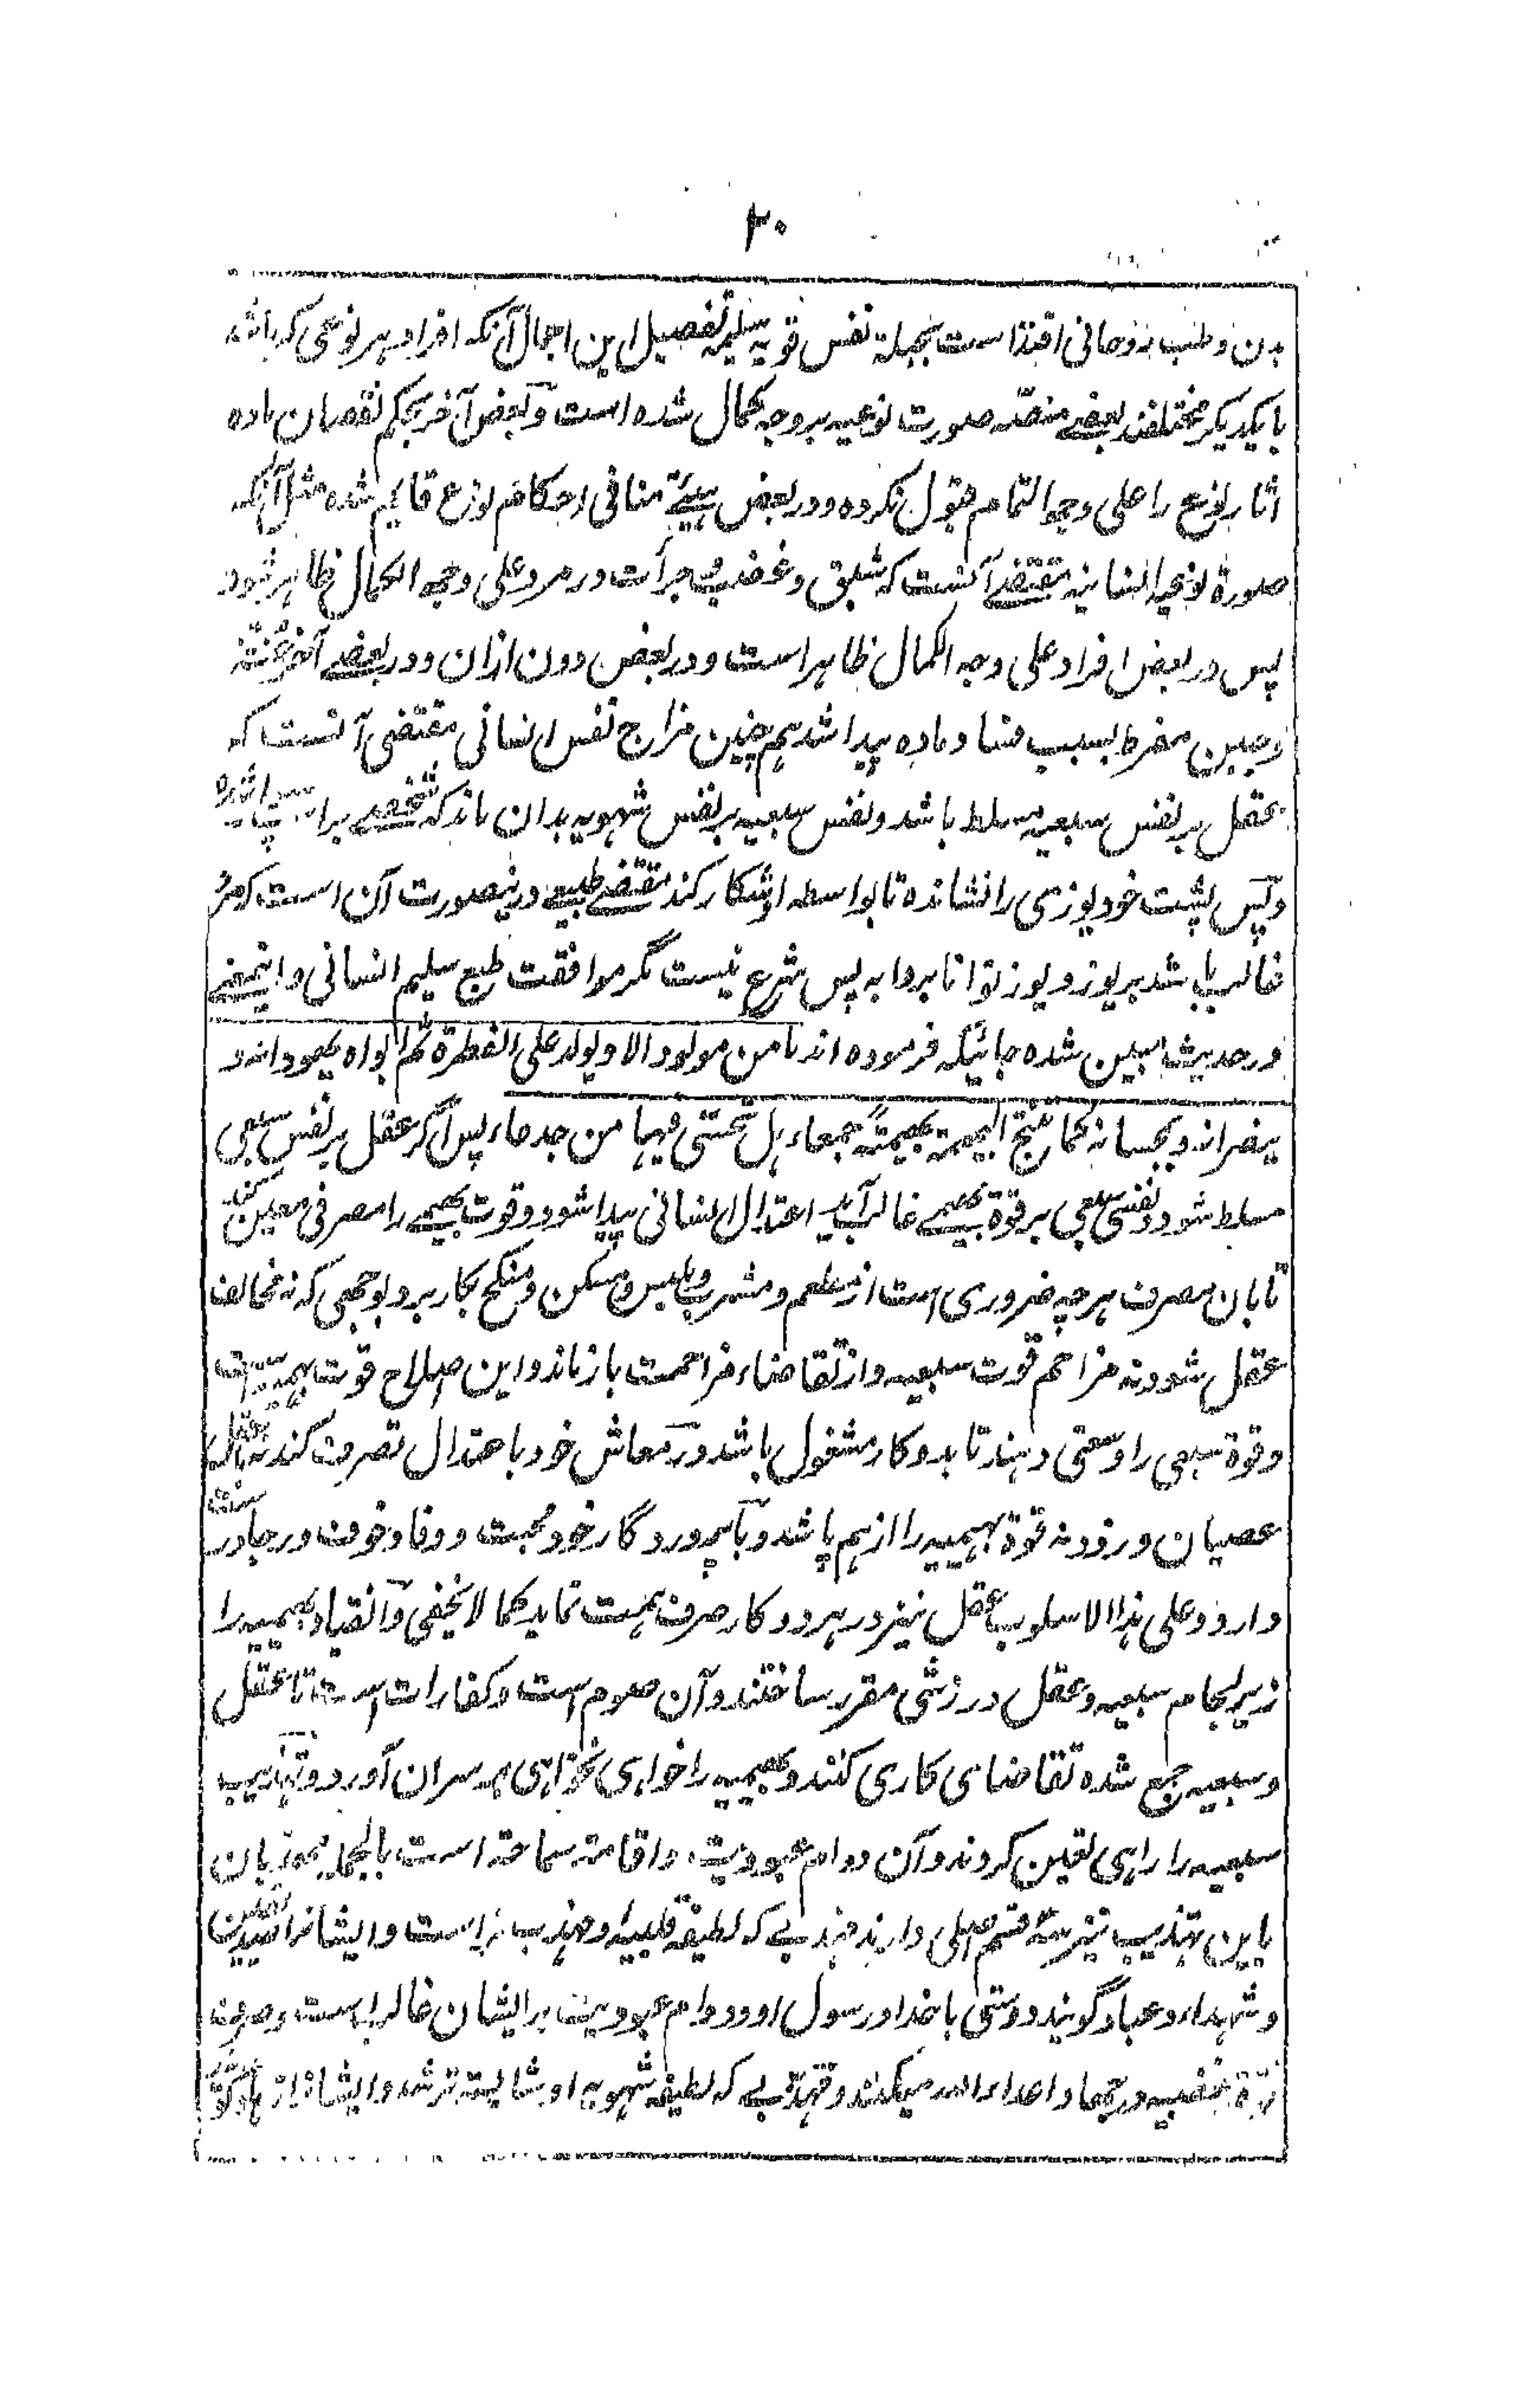 ۲۰
بدن و طب روحانی اقتدا است بجبلة نفس قویه سلیمه تفصیل این اجمال آنکه افراد هر نوعی که باشد
بایکدیگر مختلفند بعضے منصّه صورت نوعیه بر وجه کمال شده است و بعض آخر بحکم نقصان ماده
آثار نوع را علی وجه التمام قبول نکرده و در بعض هیئتے منافی احکام نوع قایم شده مثل آنکه
صورة نوعیه انسانیه مقتضے آنست که شبق و غضب و جرأت در مرد علی وجه الکمال ظاهر شود
پس در بعض افراد علی وجه الکمال ظاهر است و در بعض دون ازان و در بعضے آخر عُنّت
و جبن مفرط بسبب فساد ماده پیدا شد هم چنین مزاج نفس انسانی مقتضی آنست که
عقل بر نفس سبعیه مسلط باشد و نفس سبعیه بر نفس شهویه بدان ماند که شخصے بر اسپ
و پس پشت خود یوزی را نشانده تا بواسطه او شکار کند مقتضے طبیعے درینصورت آن است که مرد
غالب باشد بر یوز و یوز توانا بر دابه پس شرع نیست مگر موافقت طبع سلیم انسانی و اینمعنے
در حدیث مبین شده جائیکه فرموده اند ما من مولود الا و یولد علی الفطرة ثم ابواه یهودانه و
ینصرانه و یمجسانه کما تنتج البهیمة بهیمةً جمعاء هل تحس فیها من جدعاء پس اگر عقل بر نفس سبعی
مسلط شود و نفس سبعی بر قوة بهیمے غالب آید اعتدال انسانی پیدا شود و قوت بهیمے را مصرفی معین کنند
تا بان مصرف هرچه ضروری است از مطعم و مشرب و ملبس و مسکن و منکح بکار برد بوجهی که نه مخالف
عقل شود نه مزاحم قوت سبعیه و از تقاضاء مزاحمت باز ماند و این اصلاح قوت بهیمیه است
و قوة سبعی را وسعتی دهند تا بدو کار مشغول باشد در معاش خود با اعتدال تصرف کند نه با عقل
عصیان ورزد و نه قوة بهیمیه را از هم پاشد و با پروردگار خود محبت و وفا و خوف و رجا در
دارد و علی هذا الاسلوب عقل نیز در هر دو کار صرف همت نماید کما لا یخفی و انقیاد بهیمیه را
زیر لجام سبعیه و عقل ورزشی مقرر ساختند و آن صوم است و کفارات است تا عقل
و سبعیه جمع شده تقاضای کاری کنند و بهیمیه را خواهی نخواهی بر سر آن آورد و تهذیب
سبعیه را راهی تعین کردند و آن دوام عبودیت و اقامت سماحة است بالجمله مهذبان
باین تهذیب نیز سه قسم اصلی دارند مهذبے که لطیفه قلبیه او مهذب تر است و ایشانرا صدیقین
و شهداء و عباد گویند و دوستی با خدا و رسول او و دوام عبودیت بر ایشان غالب است و صرف
قوة غضبیه در جهاد اعداء الله میکنند و مهذبے که لطیفه شهویه او شایسته تر شد و ایشان را